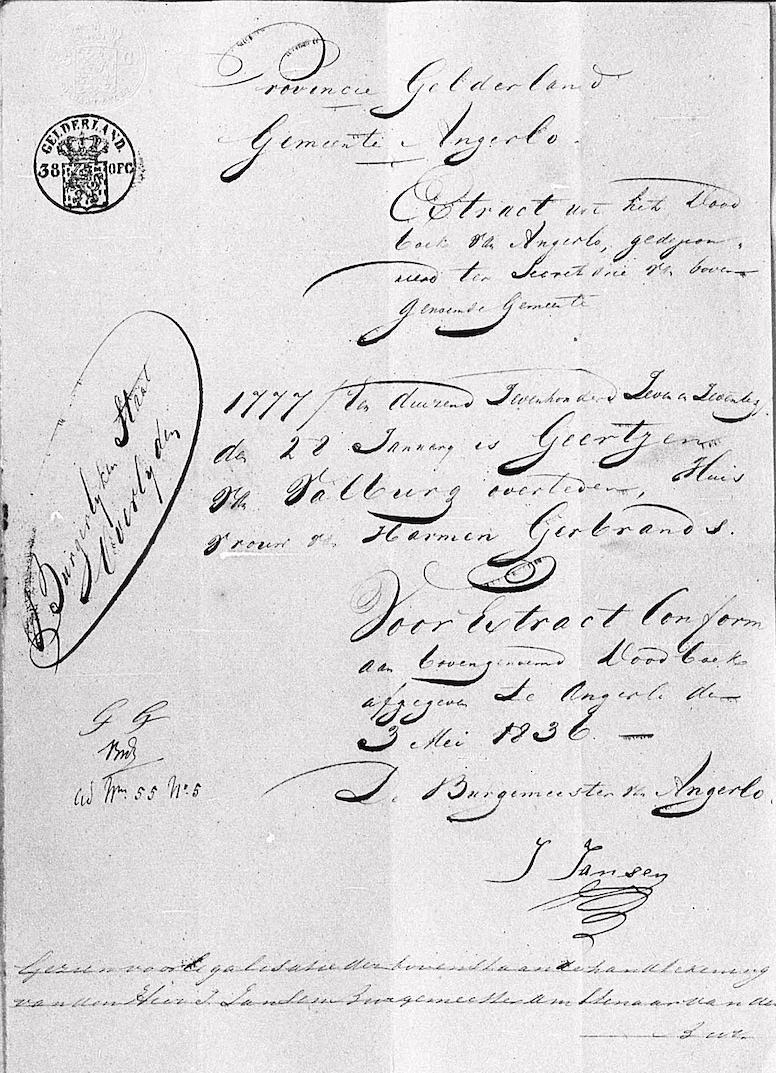 GELDERLAND.
38 OPC
Provincie Gelderland
Gemeente Angerlo.
Extract uit het Dood
boek van Angerlo, gedepon-
neerd ter Secretarie van boven
genoemde Gemeente
1777 / Een duizend Zevenhonderd Zeven en Zeventig
den 28 January is Geertjen
van Valburg overleden, Huis
vrouw van Harmen Gerbrands.
Burgerlyken Staat
Overlyden
Voor Extract Conform
aan bovengenoemd Doodboek
afgegeven te Angerlo den
3 Mei 1836.
G G
ad 55 No 5
De Burgemeester van Angerlo.
J Jansen
Gezien voor legalisatie der bovenstaande handtekening
van den Heer J. Jansen Burgemeester Ambtenaar van den